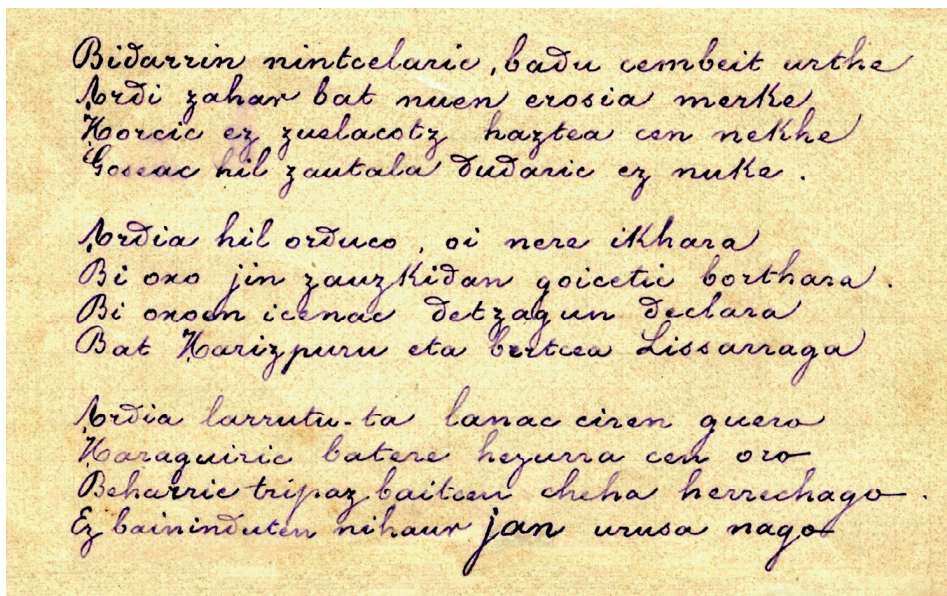 Bidarrin nintcelaric, badu cembeit urthe
Ardi zahar bat nuen erosia merke
Horcic ez zuelacotz haztea cen nekhe
Goseac hil zautala dudaric ez nuke.
Ardia hil orduco, oi nere ikhara
Bi oxo jin zauzkidan goicetic borthara.
Bi oxoen icenac detzagun declara
Bat Harizpuru eta bertcea Lissarraga
Ardia larrutu-ta lanac ciren guero
Haraguiric batere hezurra cen oro
Beharric tripaz baitcen cheha herrechago.
Ez baininduten nihaur jan urusa nago